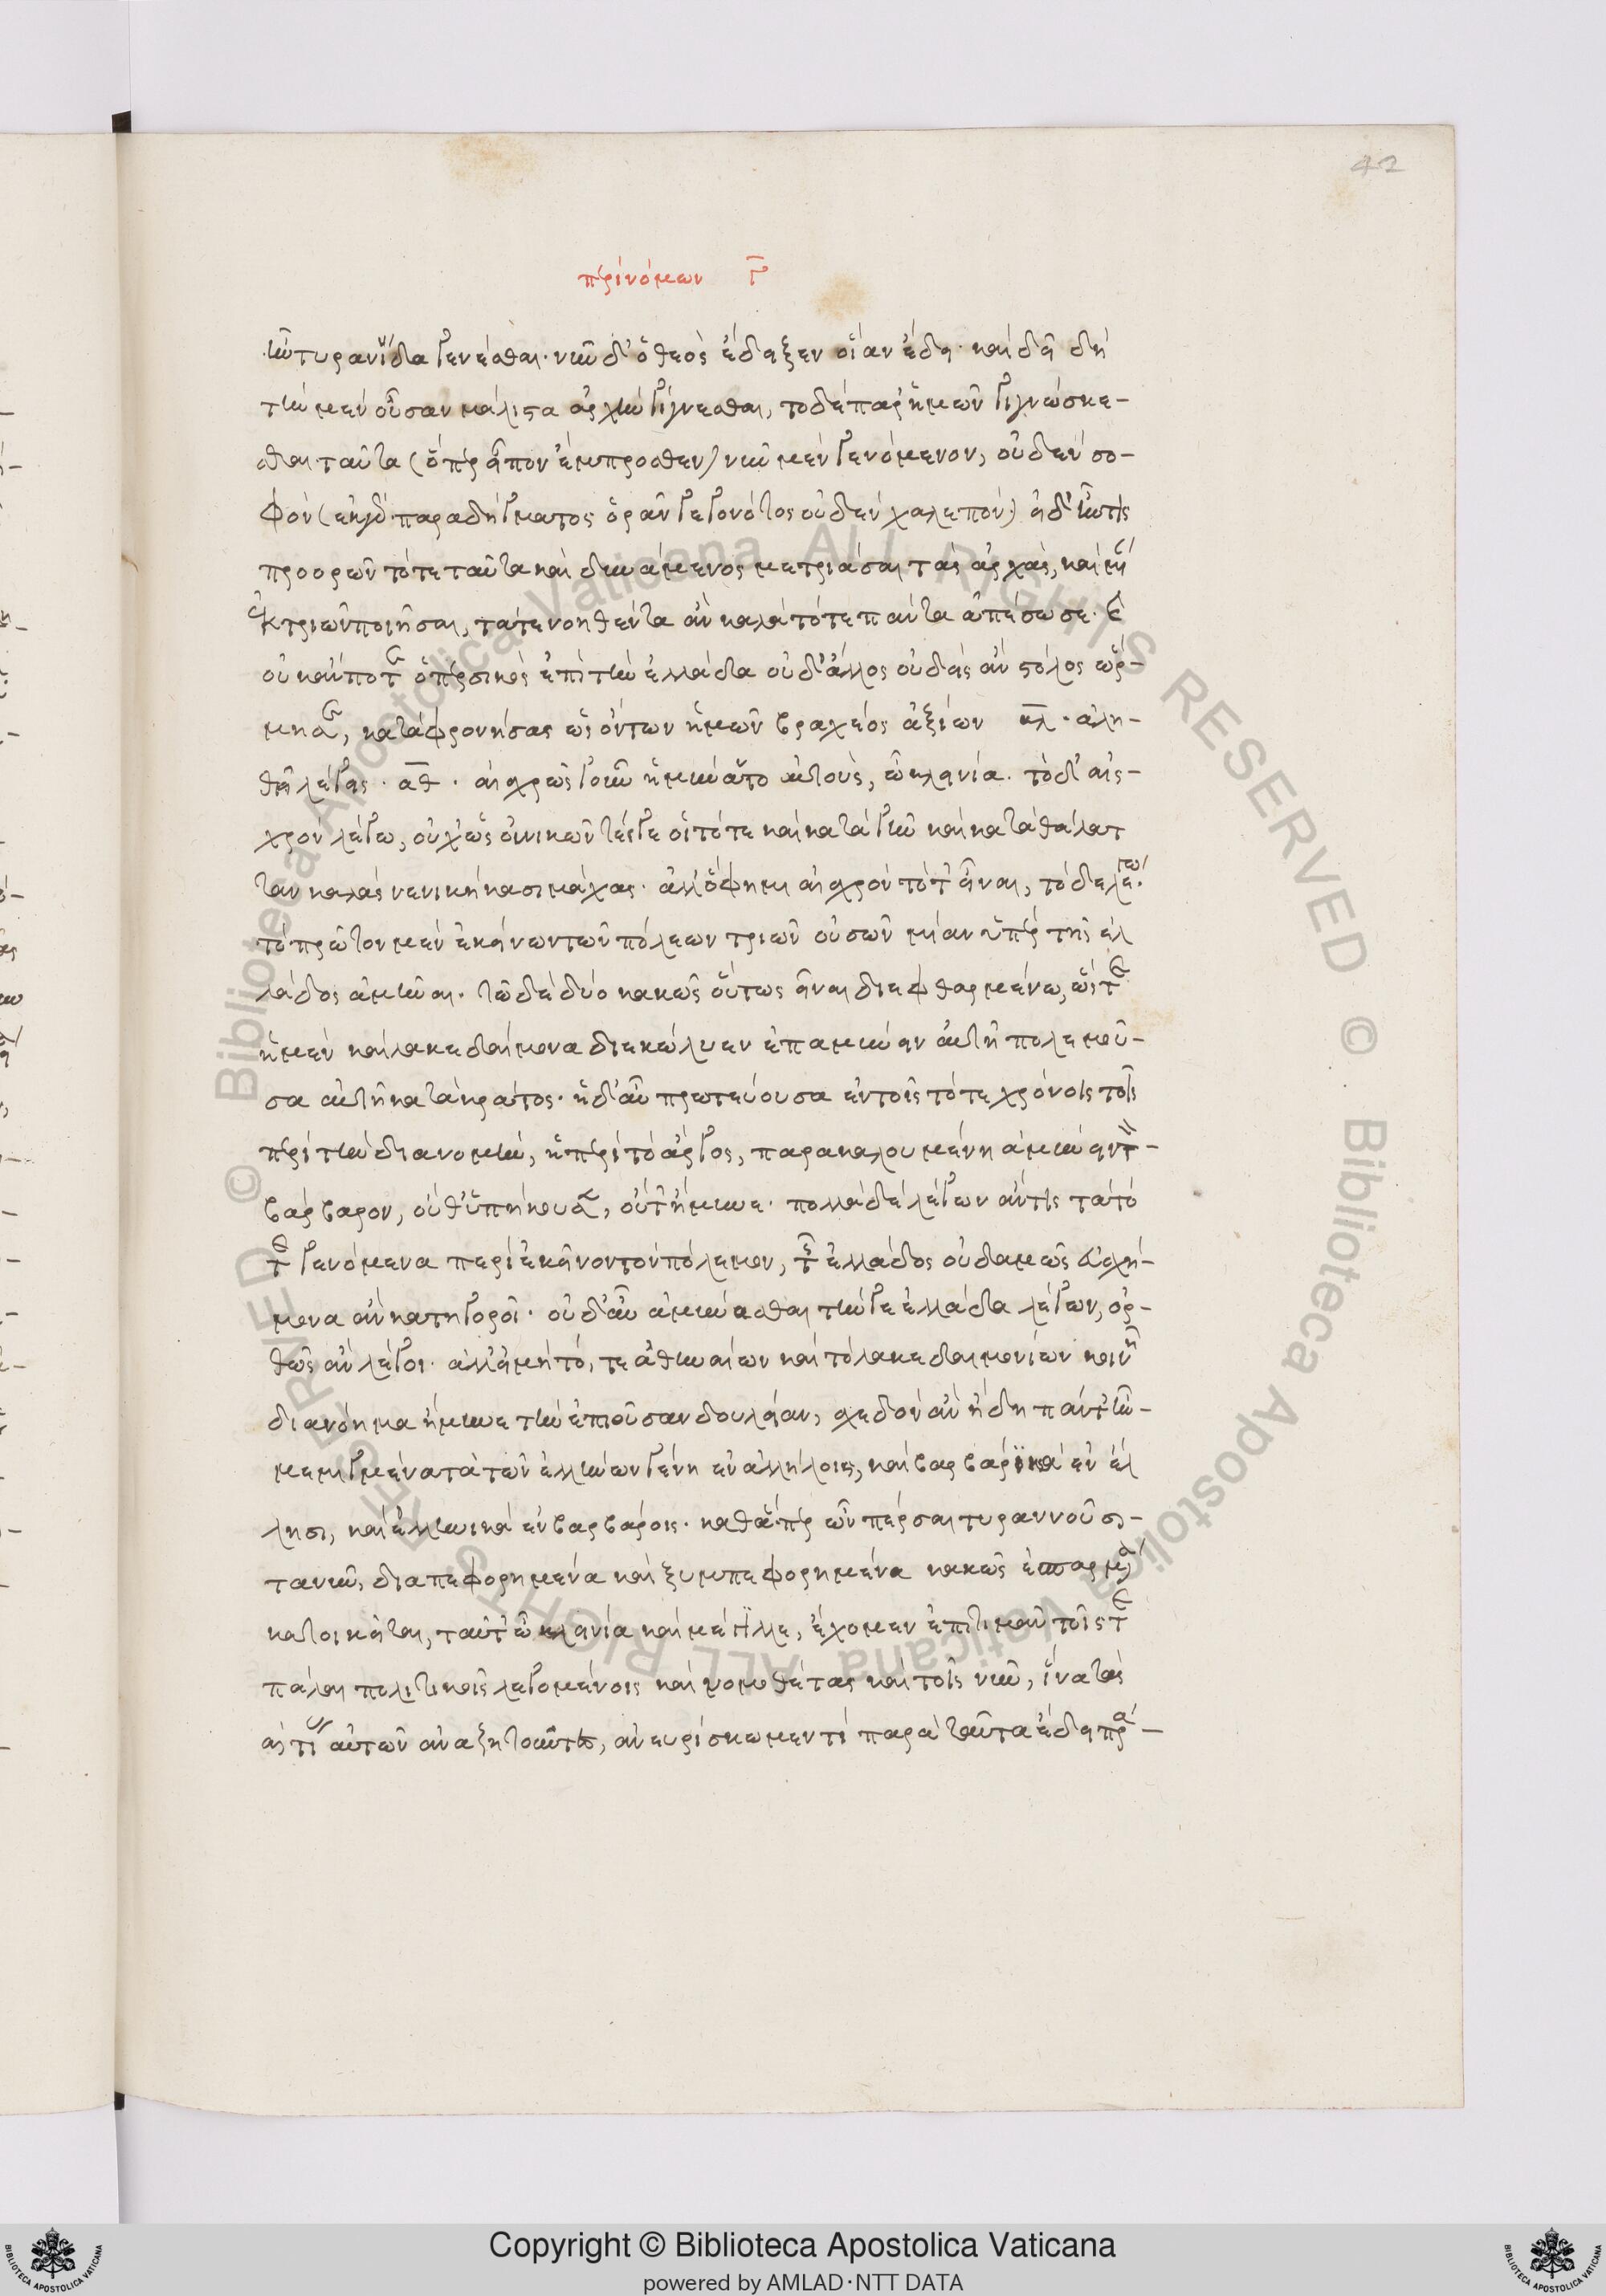 42
περὶ νόμων Γ
ὴν τυρανίδα γενέσθαι· νῦν δ' ὁ θεὸς ἔδειξεν οἵαν ἔδει· καὶ δεῖ δὴ
τὴν μένουσαν μάλιστα ἀρχὴν γίγνεσθαι, τὸ δὲ παρ' ἡμῶν γιγνώσκε-
σθαι ταῦτα (ὅπερ εἶπον ἔμπροσθεν) νῦν μὲν γενόμενον, οὐδὲν σο-
φόν (ἐκ γὰρ παραδείγματος ὁρᾶν γεγονότος οὐδὲν χαλεπόν·) εἰ δ' ἦν τις
προορῶν τότε ταῦτα καὶ δυνάμενος μετριάσαι τὰς ἀρχὰς, καὶ μίαν
ἐκ τριῶν ποιῆσαι, τά τε νοηθέντα ἂν καλὰ τότε πάντα ἀπέσωσε· καὶ
οὐκ ἄν ποτε ὁ περσικὸς ἐπὶ τὴν ἑλλάδα οὐδ' ἄλλος οὐδεὶς ἂν στόλος ὥρ-
μησε, καταφρονήσας ὡς ὄντων ἡμῶν βραχέος ἀξίων κλ· ἀλη-
θῆ λέγεις· ἀθ· αἰσχρῶς γοῦν ἠμύναντο αὐτοὺς, ὦ κλεινία· τὸ δ' αἰσ-
χρὸν λέγω, οὐχ ὡς οὐ νικῶντές γε οἱ τότε καὶ κατὰ γῆν καὶ κατὰ θάλατ
ταν καλὰς νενικήκασι μάχας· ἀλλ' ὅ φημι αἰσχρὸν τότ' εἶναι, τόδε λέγω·
τὸ πρῶτον μὲν ἐκείνων τῶν πόλεων τριῶν οὐσῶν μίαν ὑπὲρ τῆς ἑλ
λάδος ἀμῦναι· τὼ δὲ δύο κακῶς οὕτως εἶναι διεφθαρμένω, ὥστε
ἡ μὲν καὶ λακεδαίμονα διεκώλυεν ἐπαμύνειν αὐτῇ πολεμοῦ-
σα αὐτῇ κατὰ κράτος· ἡ δ' αὖ πρωτεύουσα ἐν τοῖς τότε χρόνοις τοῖς
περὶ τὴν διανομὴν, ἡ περὶ τὸ ἄργος, παρακαλουμένη ἀμύνειν τὸν
βάρβαρον, οὔθ' ὑπήκουσε, οὔτ' ἤμυνε· πολλὰ δὲ λέγων ἄν τις τὰ τό
τε γενόμενα περὶ ἐκεῖνον τὸν πόλεμον, τῆς ἑλλάδος οὐδαμῶς εὐσχή-
μονα ἂν κατηγοροῖ· οὐδ' αὖ ἀμύνασθαι τήν γε ἑλλάδα λέγων, ὀρ-
θῶς ἂν λέγοι· ἀλλ' εἰ μὴ τό, τε ἀθηναίων καὶ τὸ λακεδαιμονίων κοινῇ
διανόημα ἤμυνε τὴν ἐπιοῦσαν δουλείαν, σχεδὸν ἂν ἤδη πάντ' ἦν
μεμιγμένα τὰ τῶν ἑλλήνων γένη ἐν ἀλλήλοις, καὶ βάρβαρικὰ ἐν ἕλ
λησι, καὶ ἑλληνικὰ ἐν βαρβάροις· καθάπερ ὧν πέρσαι τυραννοῦσι
τανῦν, διαπεφορημένα καὶ ξυμπεφορημένα κακῶς ἐσπαρμένα
κατοικεῖται, ταῦτ' ὦ κλεινία καὶ μέγιλλε, ἔχομεν ἐπιτιμᾶν τοῖς τε
πάλαι πολιτικοῖς λεγομένοις καὶ νομοθέταις καὶ τοῖς νῦν, ἵνα τὰς
αἰτίας αὐτῶν ἀναζητοῦντες, ἀνευρίσκωμεν τί παρὰ ταῦτα ἔδει πρά-
Copyright © Biblioteca Apostolica Vaticana
powered by AMLAD·NTT DATA